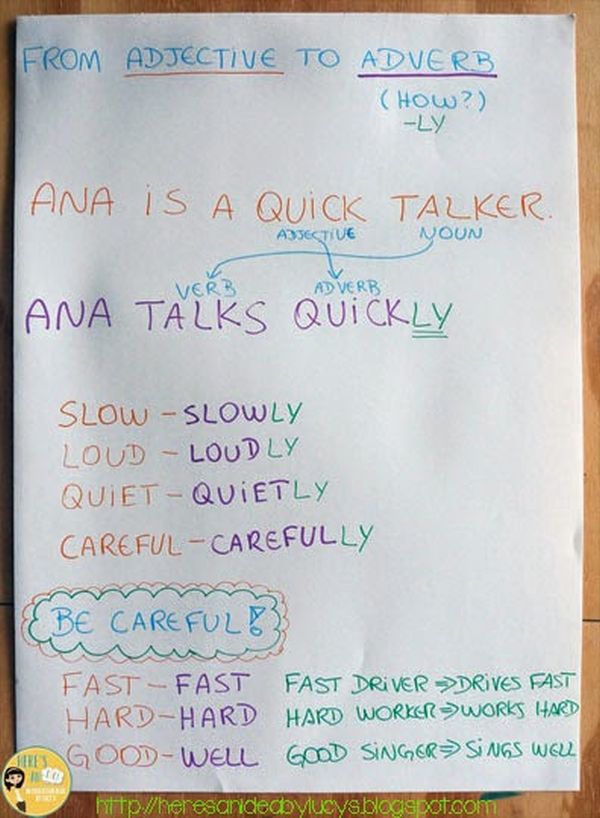 FROM ADJECTIVE TO ADVERB
(HOW?)
-LY
ANA iS A QUiCK TALKER.
ADJECTIVE NOUN
VERB ADVERB
ANA TALKS QUiCKLY
SLOW - SLOWLY
LOUD - LOUDLY
QUiET - QUiETLY
CAREFUL - CAREFULLY
BE CAREFUL!
FAST - FAST FAST DRiVER ⇒ DRiVES FAST
HARD - HARD HARD WORKER ⇒ WORKS HARD
GOOD - WELL GOOD SiNGER ⇒ SiNGS WELL
HERE'S
AN
http://heresanideabylucys.blogspot.com